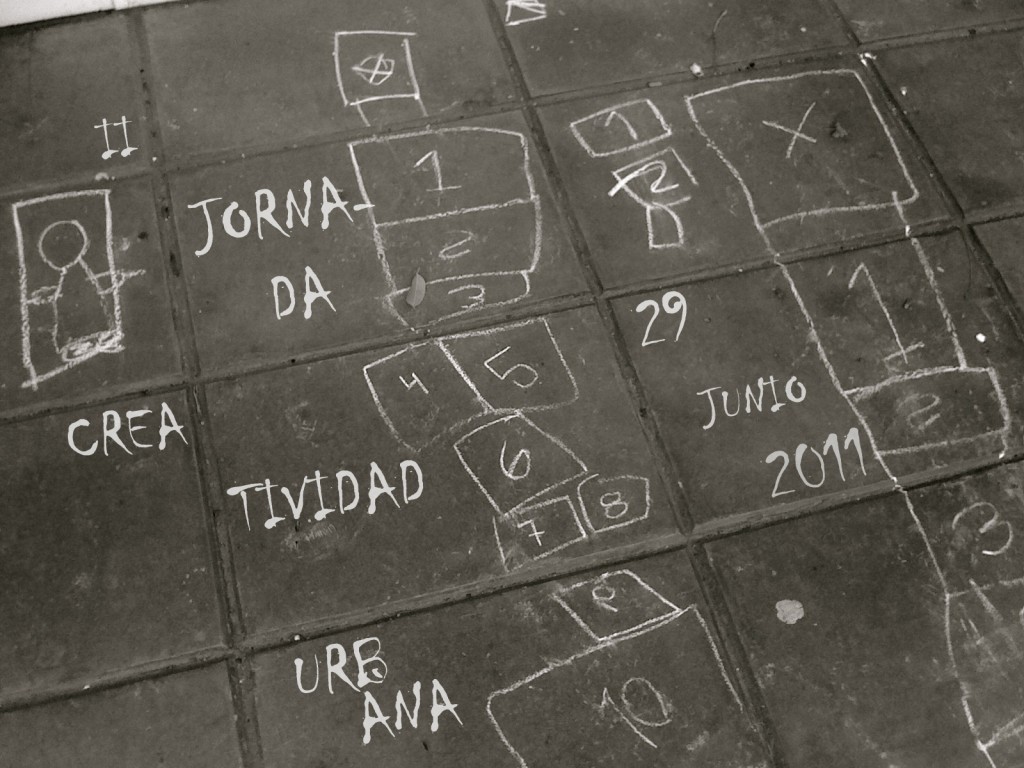 II
JORNA-
DA
CREA
TIVIDAD
URB
ANA
29
JUNIO
2011
1
2
3
4
5
6
7
8
10
1
2
X
1
2
3